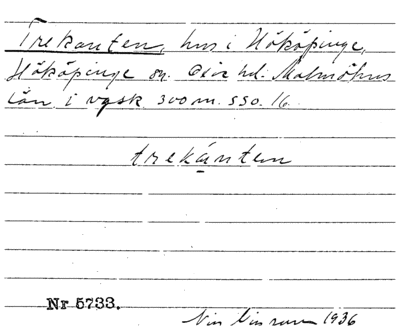 Trekanten, hus i Hököpinge,
Hököpinge sn. Oxie hd. Malmöhus
län. i vgsk 300 m. SSO. 16.
trekánten
Nr 5733.
1936